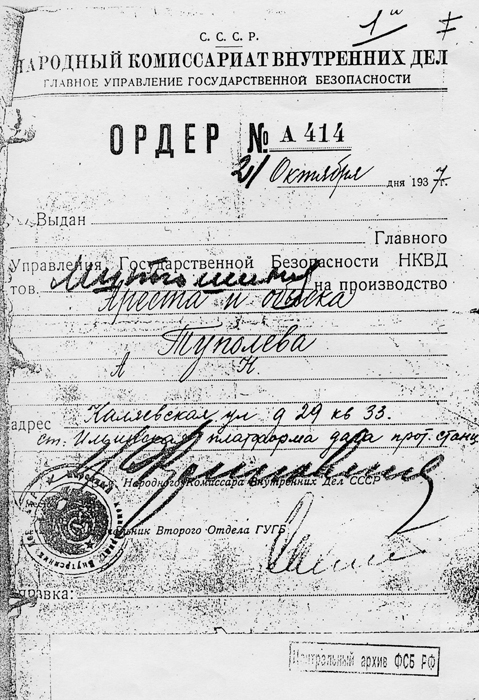 1й
С. С. С. Р.
НАРОДНЫЙ КОМИССАРИАТ ВНУТРЕННИХ ДЕЛ
ГЛАВНОЕ УПРАВЛЕНИЕ ГОСУДАРСТВЕННОЙ БЕЗОПАСНОСТИ
ОРДЕР № А 414
21 Октября дня 1937 г.
Выдан
Главного
Управления Государственной Безопасности НКВД
тов. на производство
Ареста и обыска
Туполева
А Н
адрес Каляевская ул д 29 кв 33.
ст. Ильинская платформа дача прот. станц
Народного Комиссара Внутренних Дел СССР
Начальник Второго Отдела ГУГБ
Справка:
Центральный архив ФСБ РФ